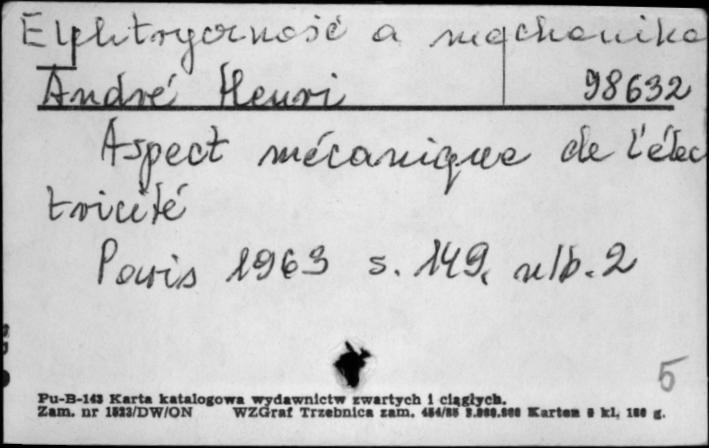 Elektryczność a mechanika
André Henri 98632
Aspect mécanique de l'élec
tricité
Paris 1963 s. 149, nlb. 2
5
Pu-B-143 Karta katalogowa wydawnictw zwartych i ciągłych.
Zam. nr 1523/DW/ON WZGraf Trzebnica zam. Karton kl, g.